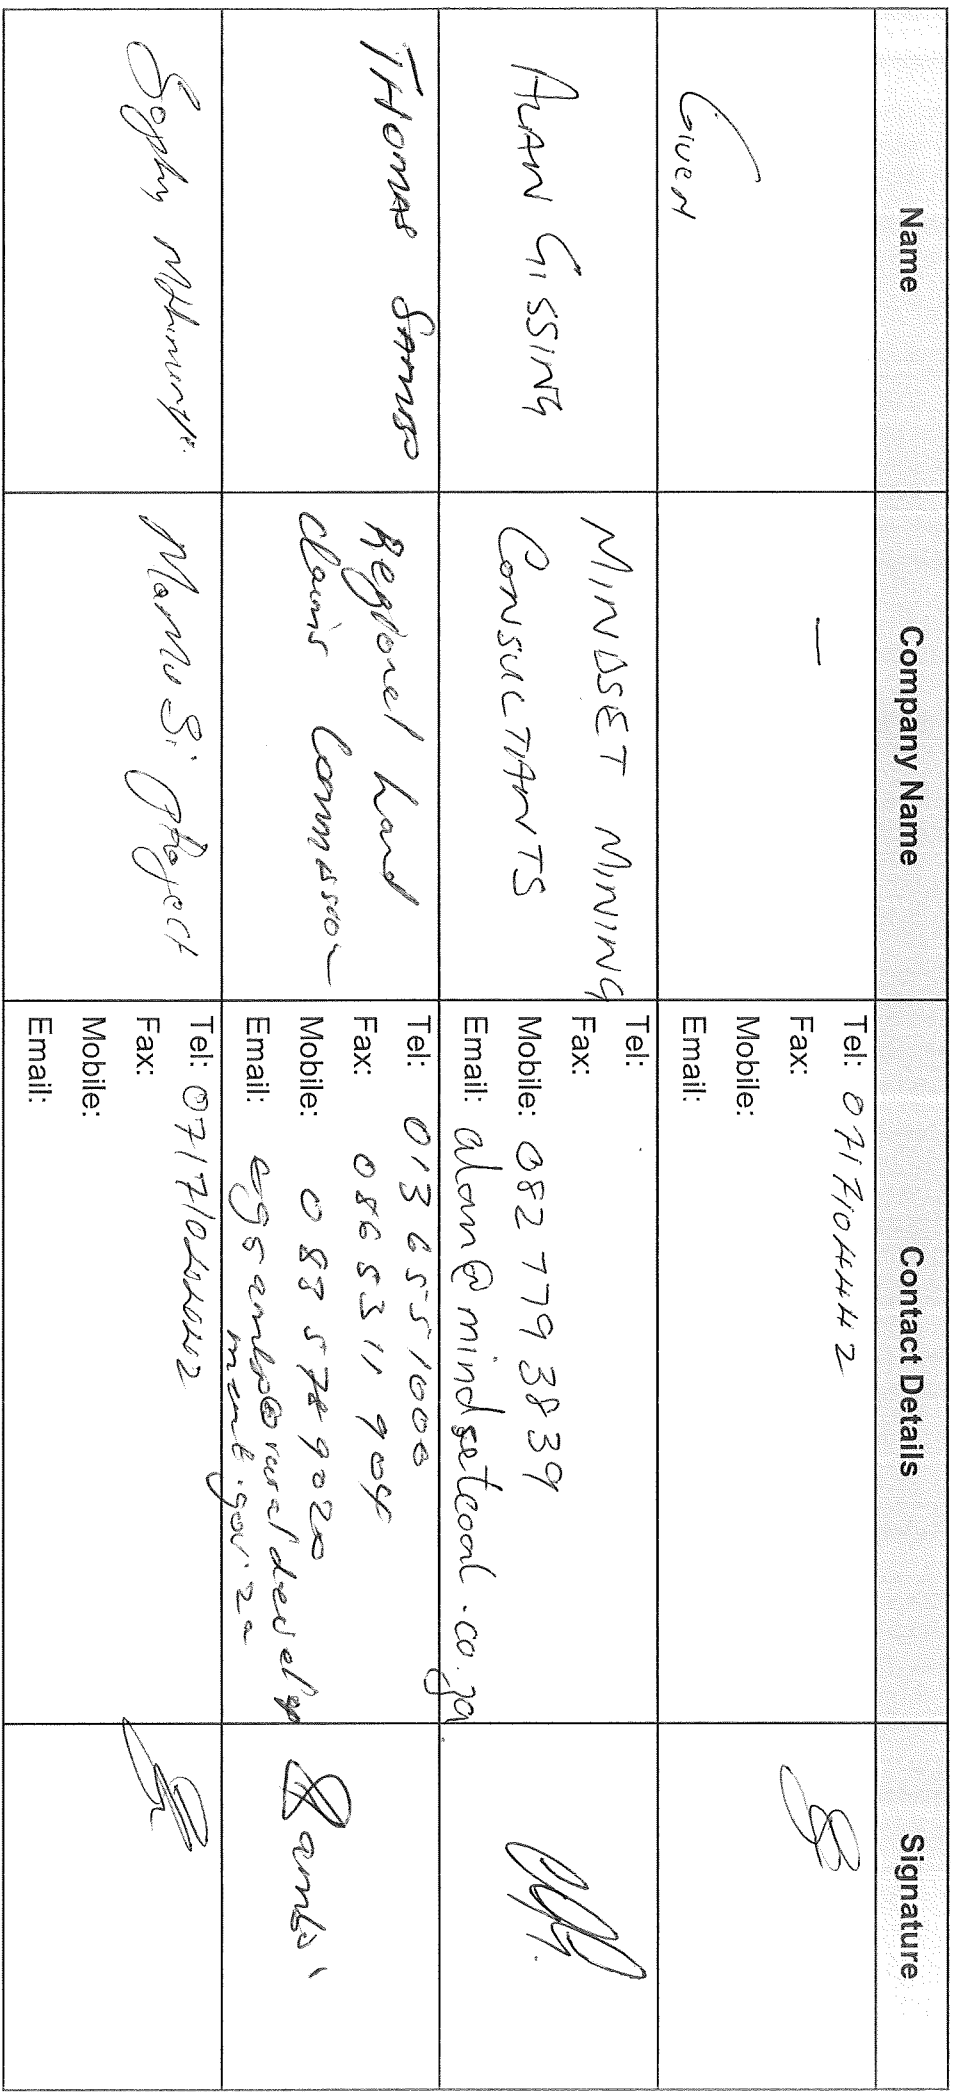 Name Company Name Contact Details Signature
Given
—
Tel: 0717104442
Fax:
Mobile:
Email:
ALAN GISSING
MINDSET MINING
CONSULTANTS
Tel:
Fax:
Mobile: 082 779 3839
Email: alan@mindsetcoal.co.za
THOMAS
Regional Land
Claims Commission
Tel: 013 655 1000
Fax: 086 531 1 904
Mobile: 0 88 578 9020
Email:
ment.gov.za
Sophy
Project
Tel: 0717104442
Fax:
Mobile:
Email: